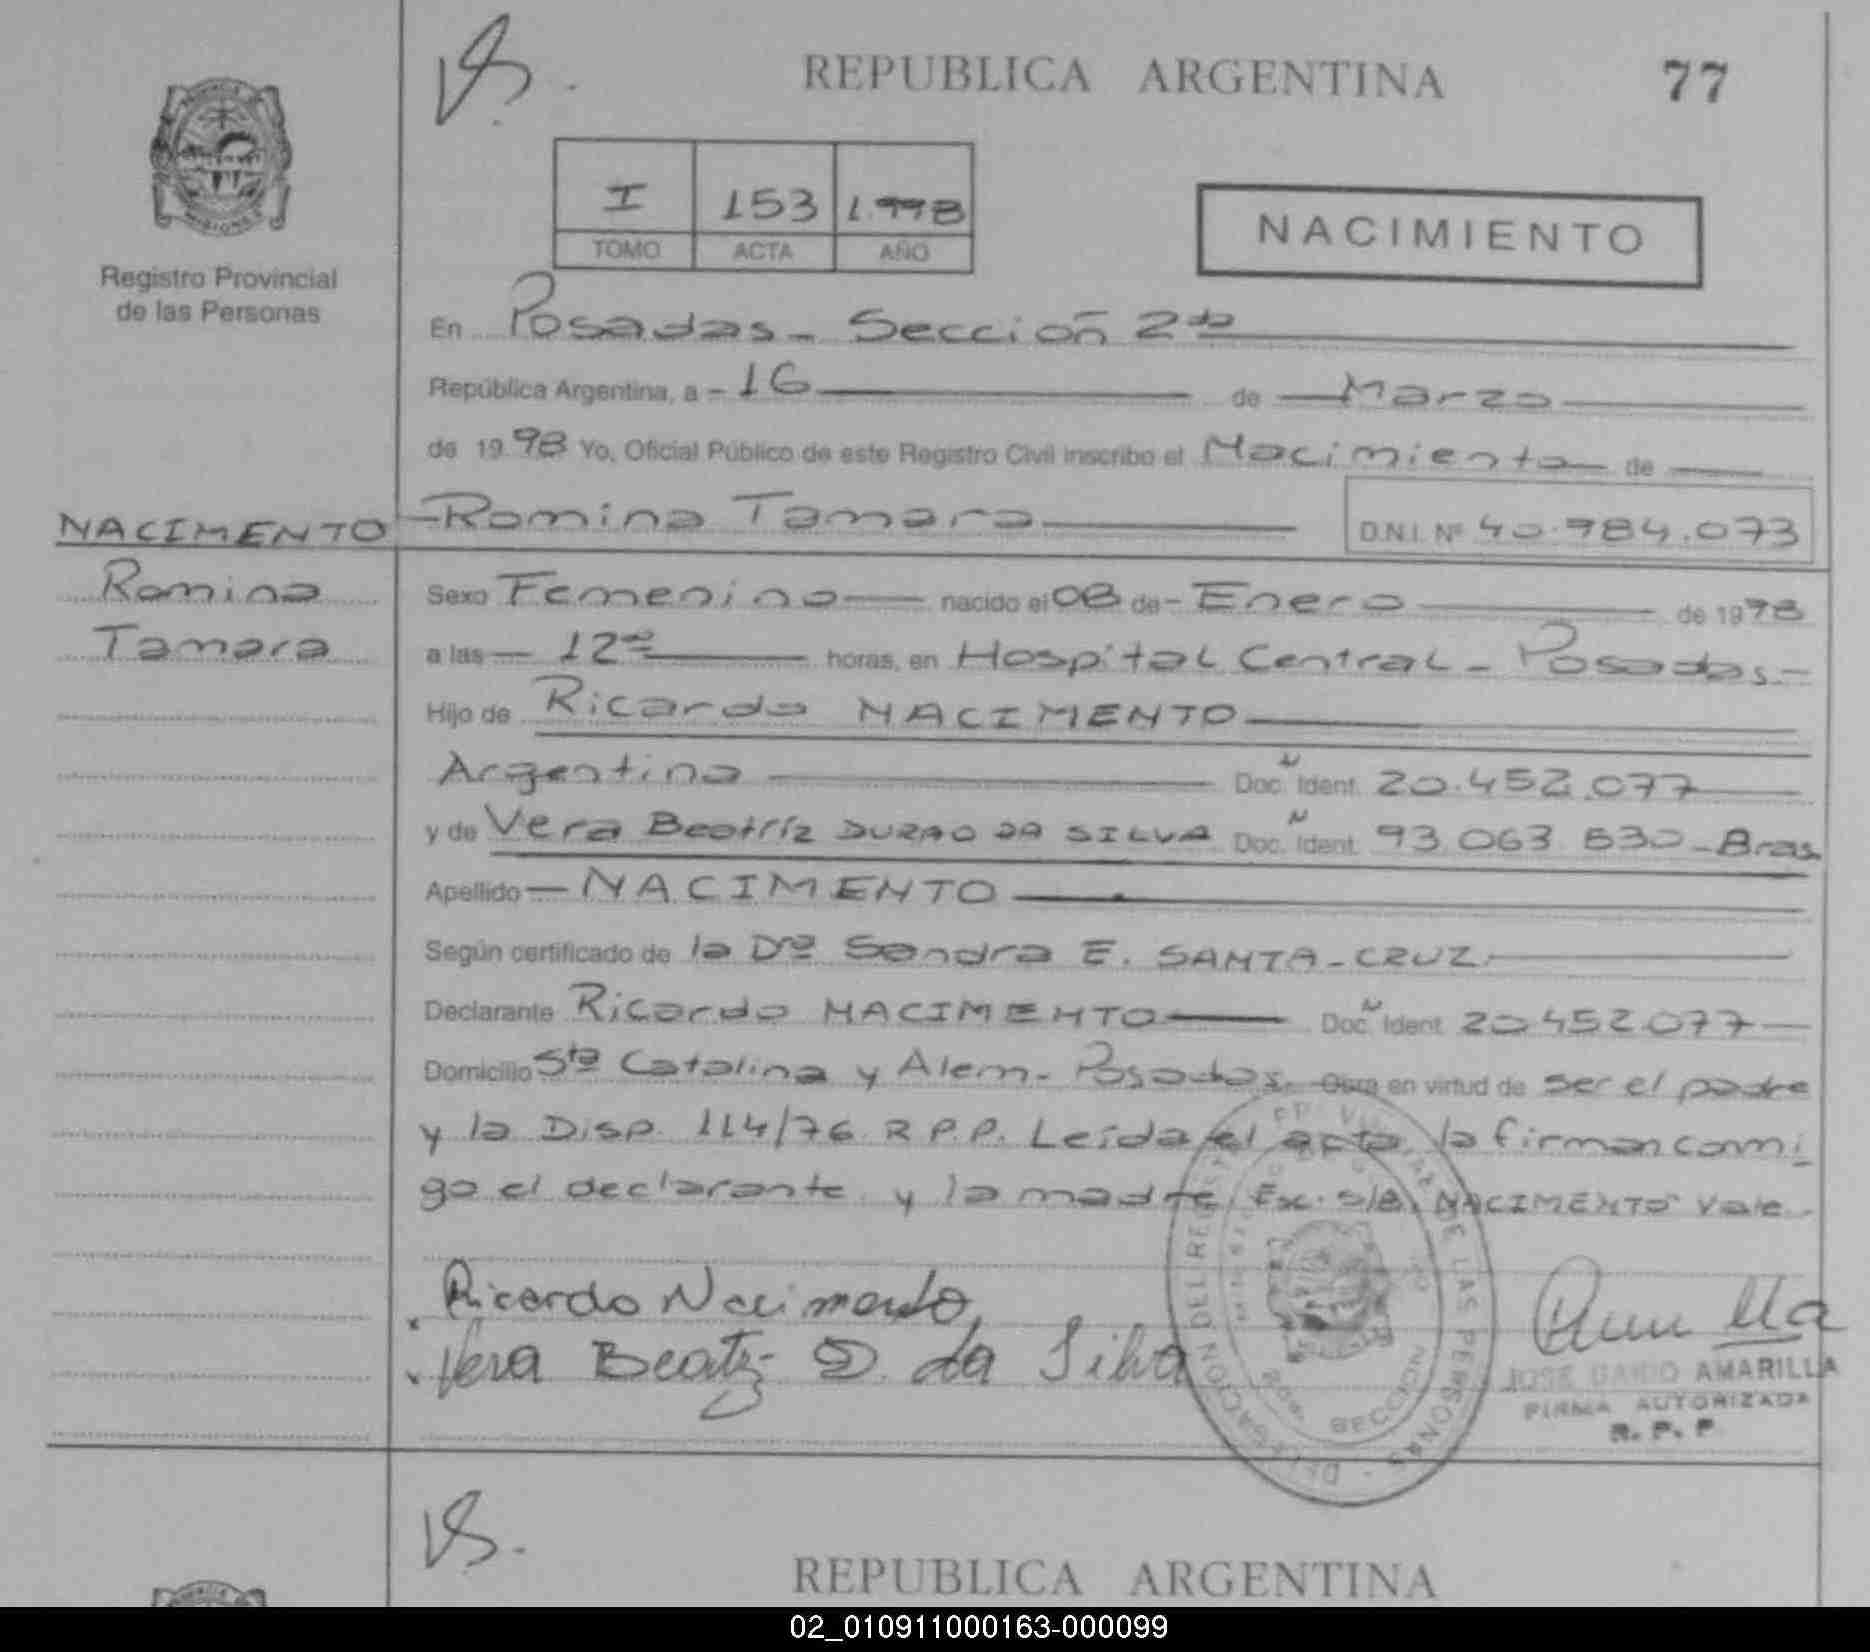 REPUBLICA ARGENTINA 77
I 153 1.998
TOMO ACTA AÑO
NACIMIENTO
MISIONES
Registro Provincial
de las Personas
En Posadas - Sección 2da
República Argentina, a - 16 de Marzo
de 19 98 Yo, Oficial Público de este Registro Civil inscribo el Nacimiento de
Romina Tamara D.N.I. Nº 40.984.073
NACIMENTO
Romina
Tamara
Sexo Femenino nacido el 08 de - Enero de 1998
a las 12 horas, en Hospital Central - Posadas -
Hijo de Ricardo NACIMENTO
Argentino Doc. Ident. 20.452.077
y de Vera Beatríz DURAO DA SILVA Doc. Ident. 93.063.830 - Bras.
Apellido - NACIMENTO
Según certificado de la Dra Sandra E. SANTA-CRUZ
Declarante Ricardo NACIMENTO Doc. Ident. 20.452.077
Domicilio Sta Catalina y Alem - Posadas. Obra en virtud de ser el padre
y la Disp. 114/76 R.P.P. Leída el acta, la firman conmi
go el declarante y la madre. Ex. s/B. NACIMENTO Vale.
Ricardo Nacimento
Vera Beatriz D. da Silva
DELEGACION DEL REGISTRO DE LAS PERSONAS
SECCION
JOSE DARIO AMARILLA
FIRMA AUTORIZADA
R. P. P
REPUBLICA ARGENTINA
02_010911000163-000099